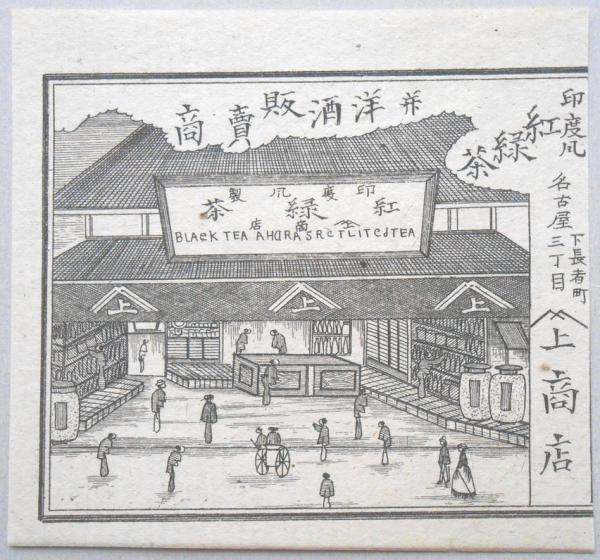 印度风
紅緑茶
并洋酒販賣商
名古屋下長者町
三丁目
上商店
印度风製
紅緑茶
上商店
BLAEKTEA AHARASRETLITEdTEA
上
上
上